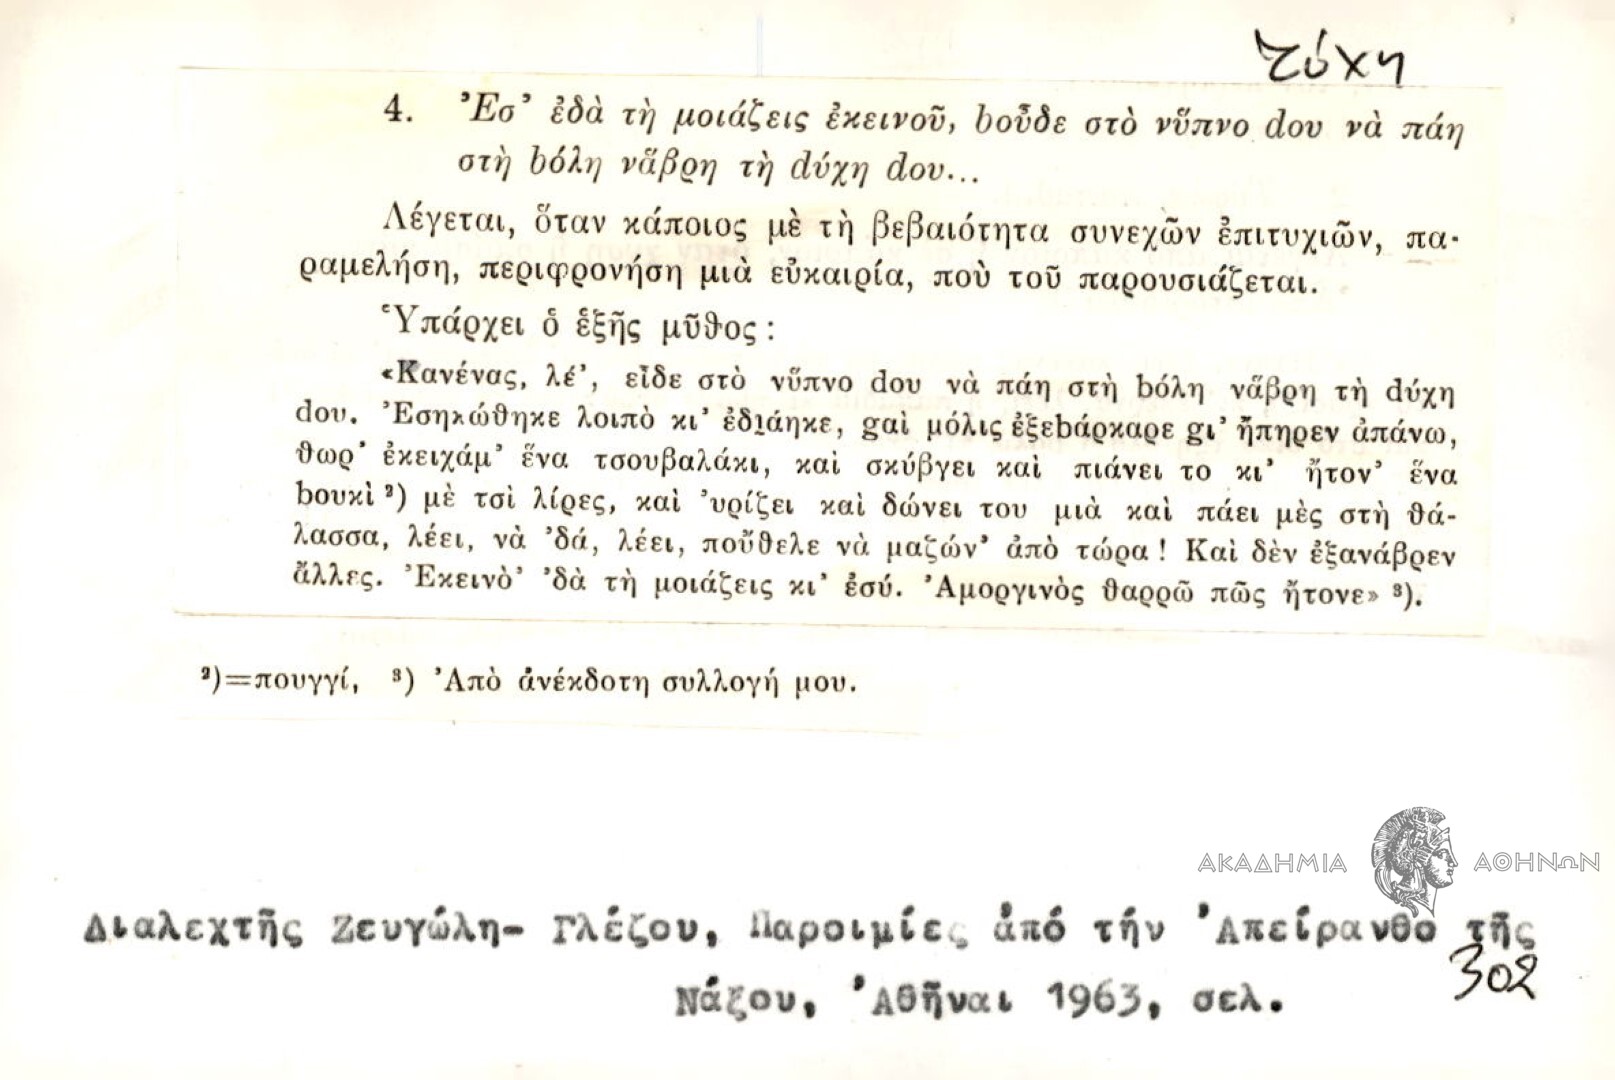 τύχη
4. Ἐσ’ ἐδὰ τὴ μοιάζεις ἐκεινοῦ, bοὖδε στὸ νὕπνο dου νὰ πάη
στὴ bόλη νἄβρη τὴ dύχη dου...
Λέγεται, ὅταν κάποιος μὲ τὴ βεβαιότητα συνεχῶν ἐπιτυχιῶν, πα-
ραμελήση, περιφρονήση μιὰ εὐκαιρία, ποὺ τοῦ παρουσιάζεται.
Ὑπάρχει ὁ ἑξῆς μῦθος:
«Κανένας, λέ’, εἶδε στὸ νὕπνο dου νὰ πάη στὴ bόλη νἄβρη τὴ dύχη
dου. Ἐσηκώθηκε λοιπὸ κι’ ἐδιάηκε, gαὶ μόλις ἐξεbάρκαρε gι’ ἤπηρεν ἀπάνω,
θωρ’ ἐκειχάμ’ ἕνα τσουβαλάκι, καὶ σκύβγει καὶ πιάνει το κι’ ἤτον’ ἕνα
bουκὶ ²) μὲ τσὶ λίρες, καὶ ’υρίζει καὶ δώνει του μιὰ καὶ πάει μὲς στὴ θά-
λασσα, λέει, νὰ ’δά, λέει, ποὔθελε νὰ μαζών’ ἀπὸ τώρα! Καὶ δὲν ἐξανάβρεν
ἄλλες. Ἐκεινὸ’ ’δὰ τὴ μοιάζεις κι’ ἐσύ. Ἀμοργινὸς θαρρῶ πῶς ἤτονε» ³).
²)=πουγγί, ³) Ἀπὸ ἀνέκδοτη συλλογή μου.
ΑΚΑΔΗΜΙΑ ΑΘΗΝΩΝ
Διαλεχτῆς Ζευγώλη- Γλέζου, Παροιμίες ἀπό τήν Ἀπείρανθο τῆς
Νάξου, Ἀθῆναι 1963, σελ. 302